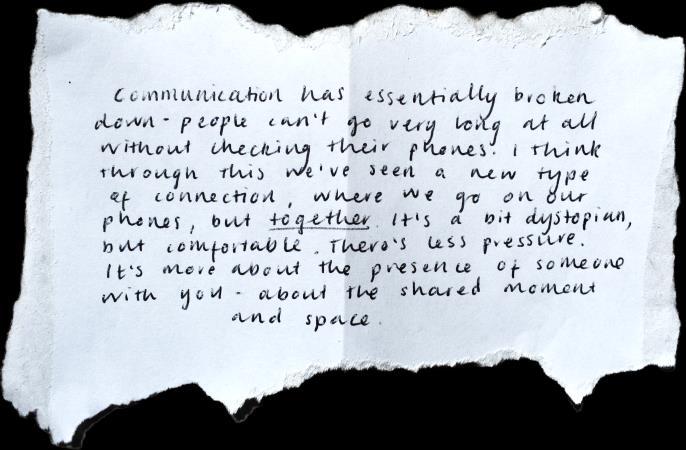 Communication has essentially broken
down - people can't go very long at all
without checking their phones. I think
through this we've seen a new type
of connection, where we go on our
phones, but together. It's a bit dystopian,
but comfortable. There's less pressure.
It's more about the presence of someone
with you - about the shared moment
and space.